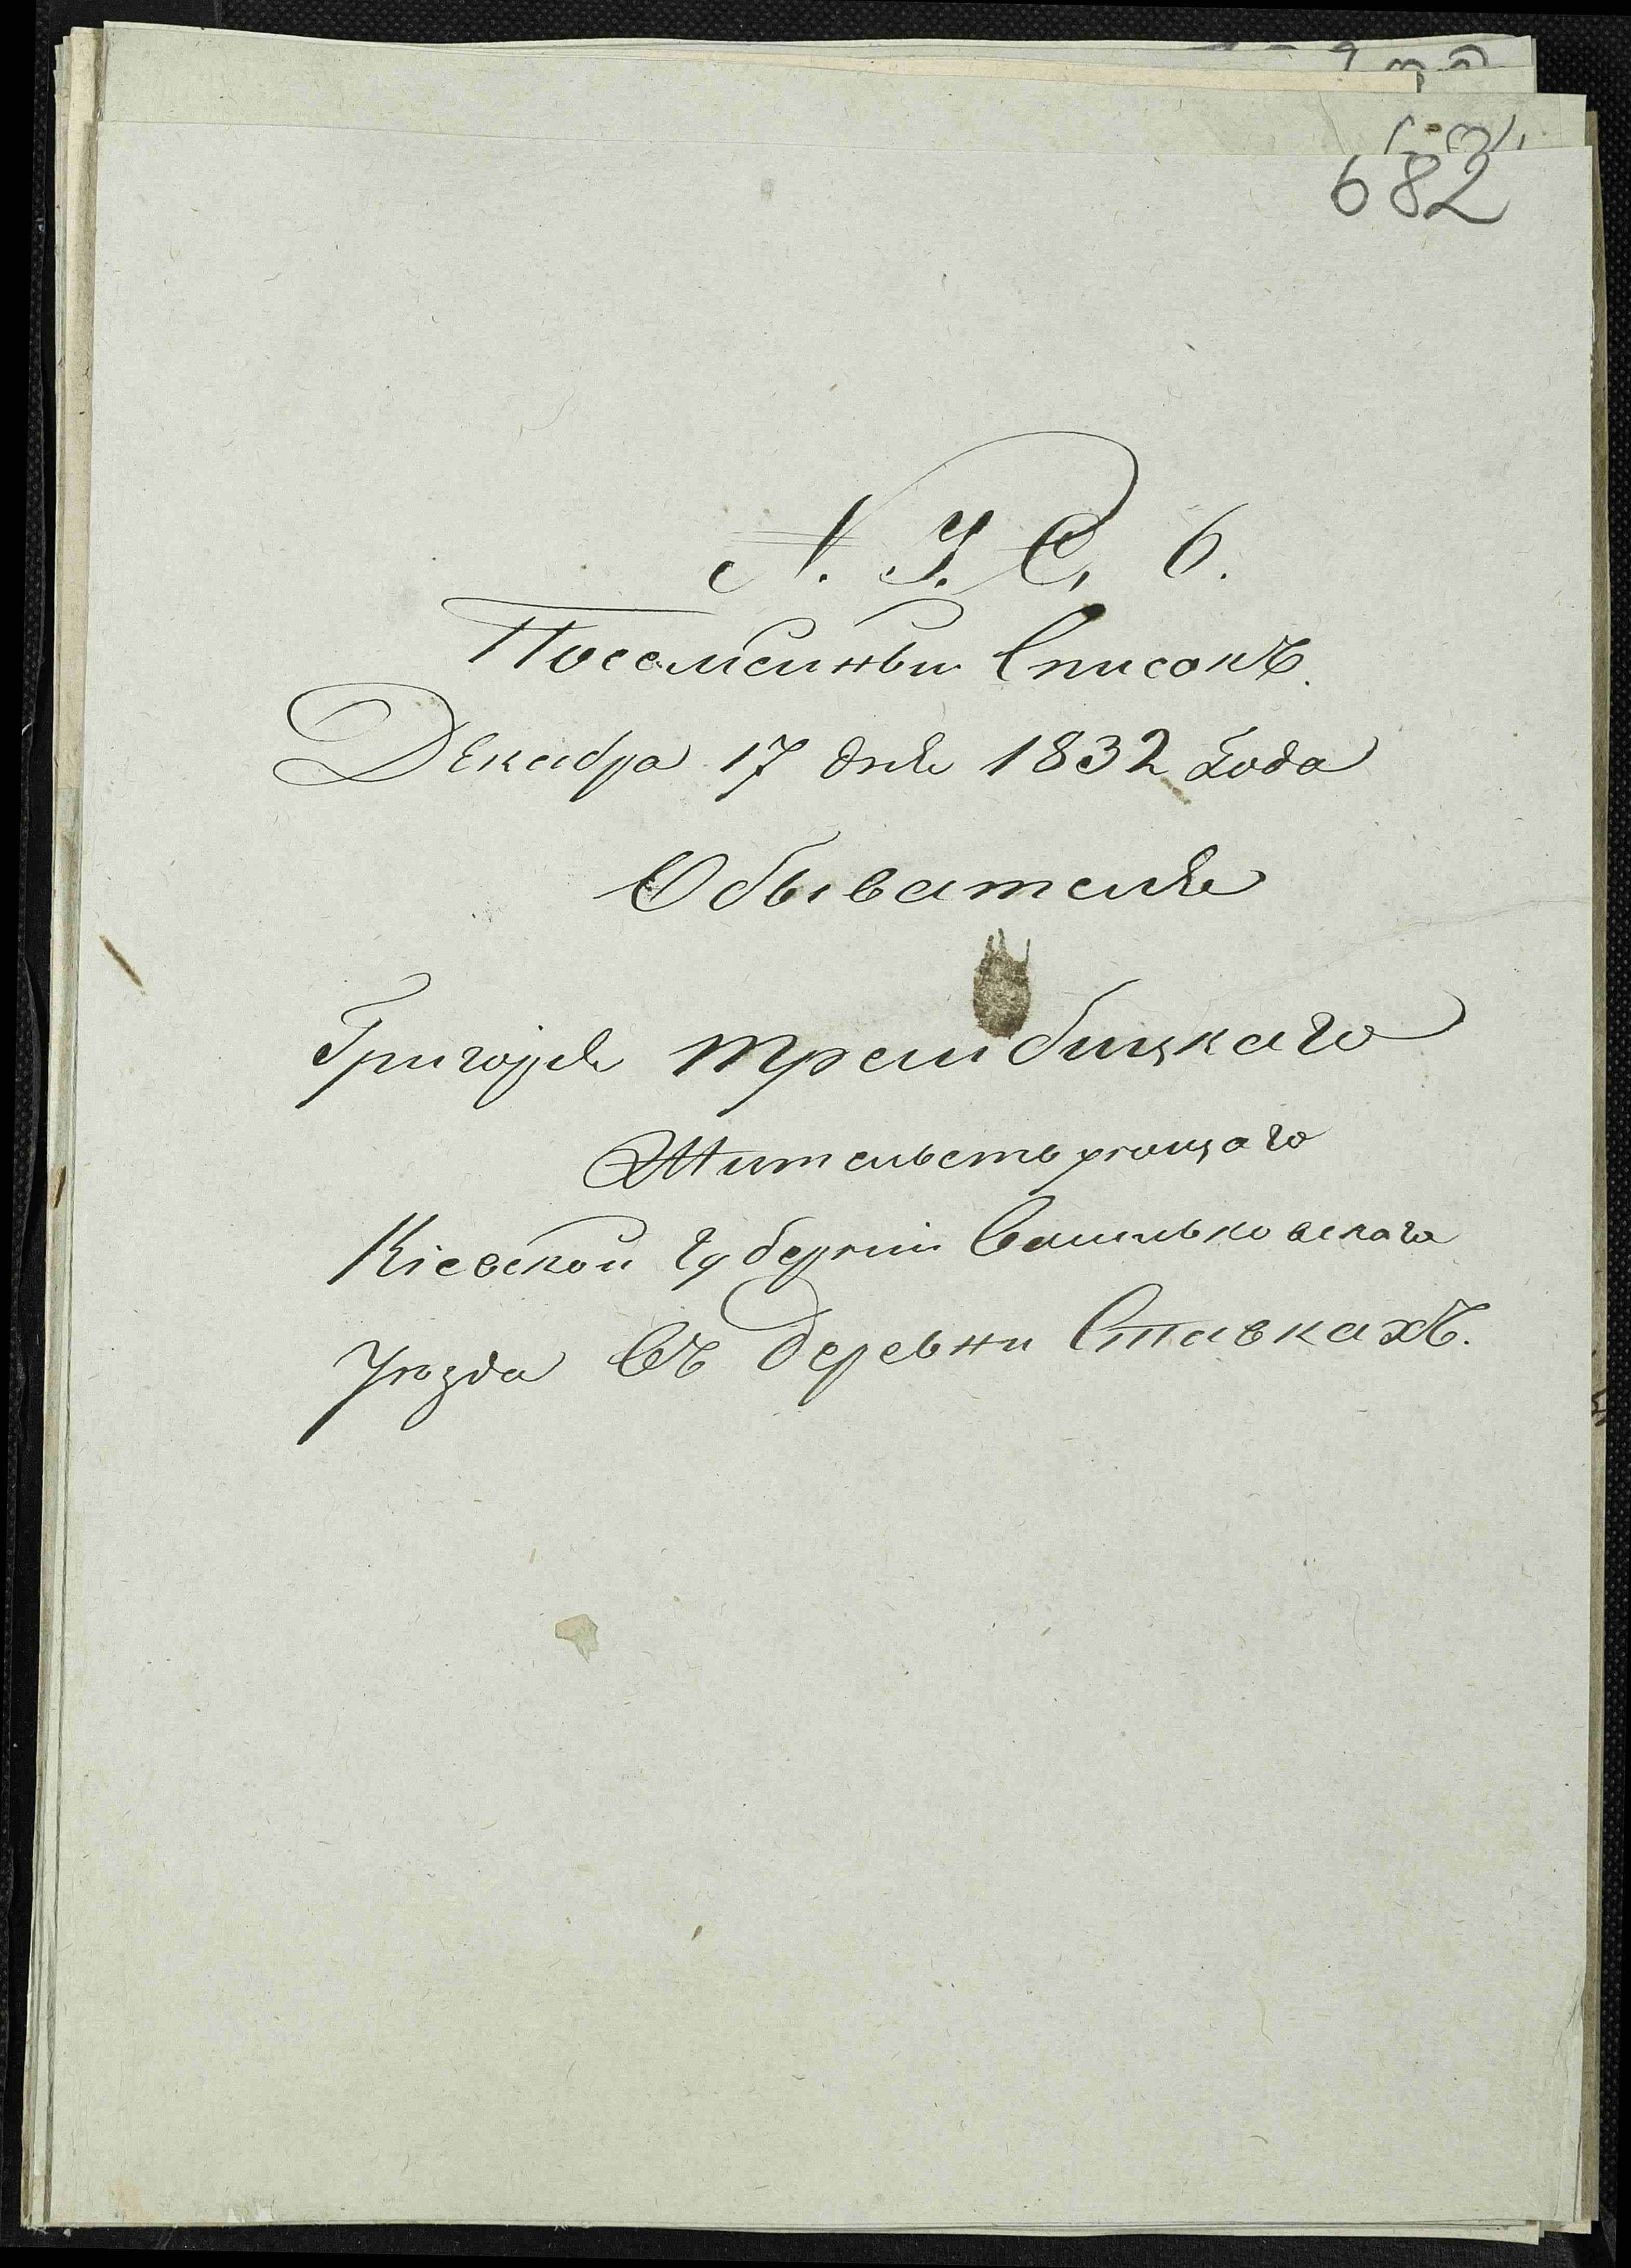 682
N. У. С. 6.
Посемейный Списокъ.
Декабра 17 дня 1832 Года
Обывателя
Григорія Трембицкаго
Жительствующаго
Кіевской Губерніи Васильковскаго
Уезда Въ деревни Ставкахъ.